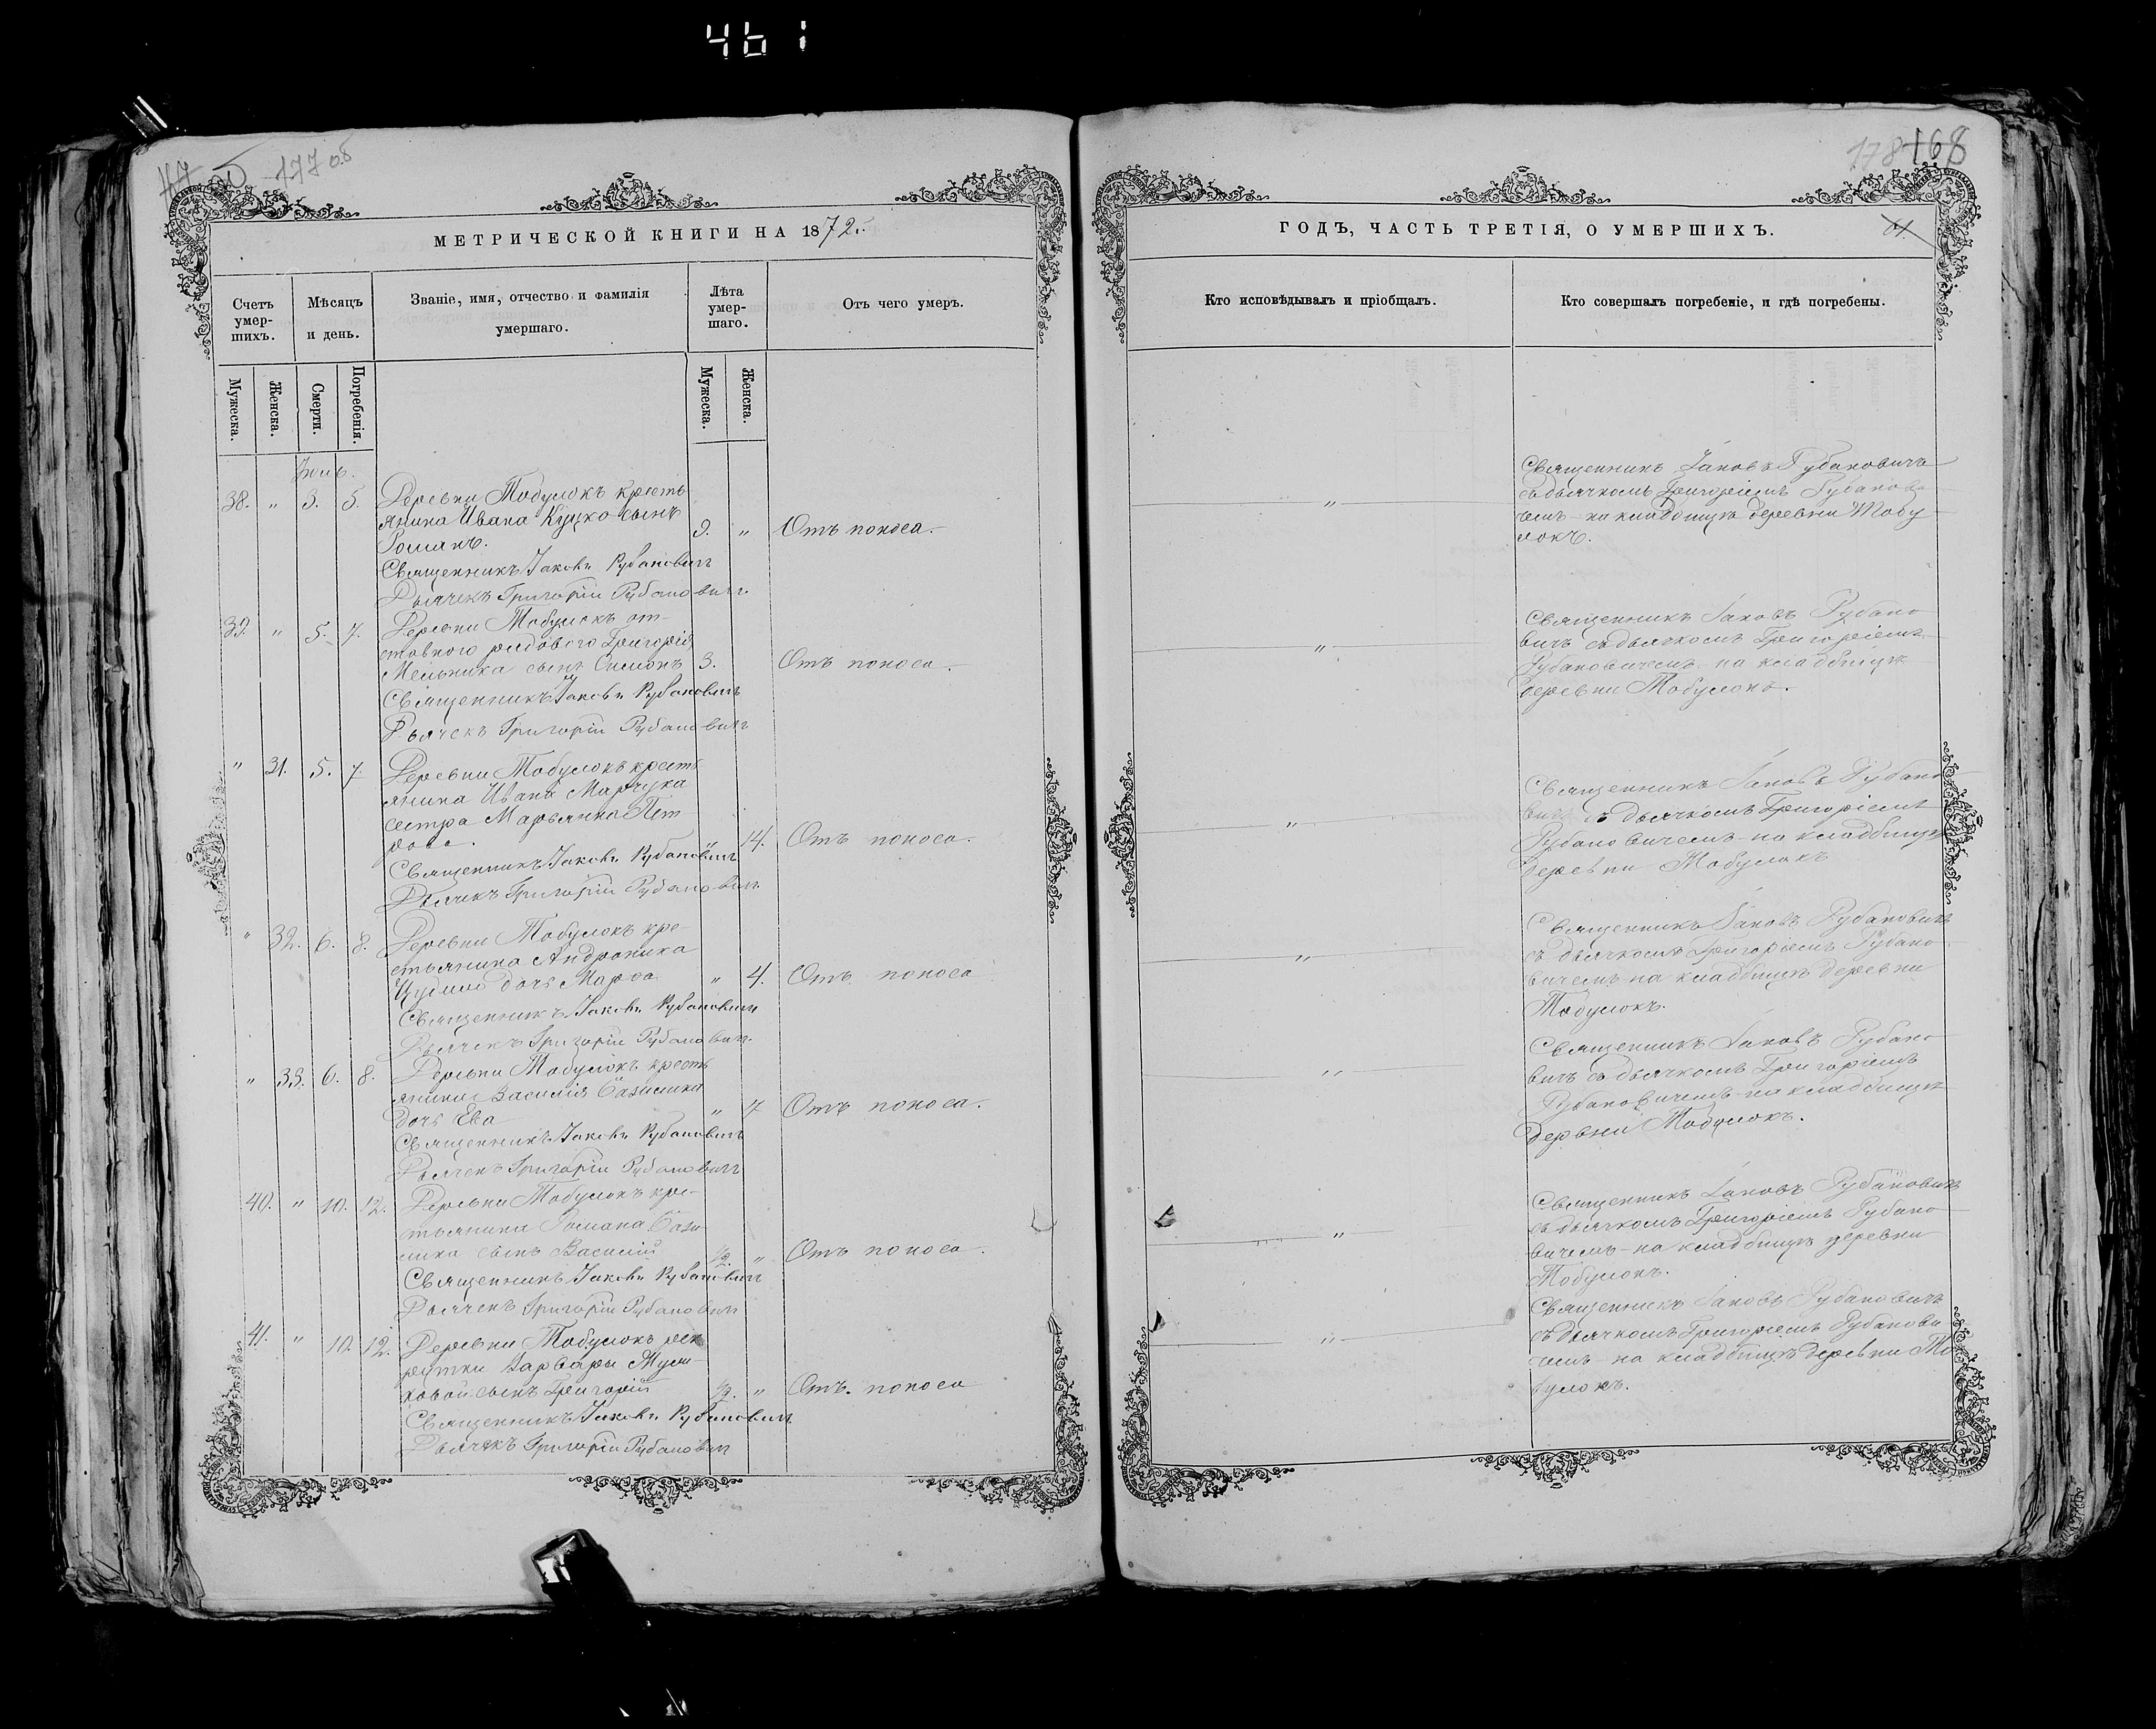 461
177 об
178 168
МЕТРИЧЕСКОЙ КНИГИ НА 1872
Счетъ умер-шихъ.
Мѣсяцъ и день.
Званіе, имя, отчество и фамилія умершаго.
Лѣта умер-шаго.
Отъ чего умеръ.
Мужеска.
Женска.
Смерти.
Погребенія.
Мужеска.
Женска.
38. " 3. 5. Деревни Тобулокъ кресть
янина Ивана Куцко сынъ
Романъ. " Отъ поноса.
Священникъ Іаковъ Рубановичъ
Дьячекъ Григорій Рубановичъ
39. " 5. 7. Деревни Тобулокъ от-
ставного рядового Григорія
Мельника сынъ Симонъ 3. Отъ поноса.
Священникъ Іаковъ Рубановичъ
Дьячекъ Григорій Рубановичъ
" 31. 5. 7 Деревни Тобулокъ кресть
янина Ивана Марчука
сестра Марьянна Пет
рова. " 14. Отъ поноса.
Священникъ Іаковъ Рубановичъ
Дьячекъ Григорій Рубановичъ
" 32. 6. 8. Деревни Тобулокъ кре-
стьянина Андроника
дочь Марфа " 4. Отъ поноса
Священникъ Іаковъ Рубановичъ
Дьячекъ Григорій Рубановичъ
" 33. 6. 8. Деревни Тобулокъ кресть
янина Василія Базилика
дочь Ева " 7 Отъ поноса.
Священникъ Іаковъ Рубановичъ
Дьячекъ Григорій Рубановичъ
40. " 10. 12. Деревни Тобулокъ кре-
стьянина Романа Бази
лика сынъ Василій 1/2 " Отъ поноса.
Священникъ Іаковъ Рубановичъ
Дьячекъ Григорій Рубановичъ
41. " 10. 12. Деревни Тобулокъ рек
рутки Варвары
сынъ Григорій 1/2. " Отъ поноса
Священникъ Іаковъ Рубановичъ
Дьячекъ Григорій Рубановичъ
ГОДЪ, ЧАСТЬ ТРЕТІЯ, О УМЕРШИХЪ.
Кто исповѣдывалъ и пріобщалъ.
Кто совершалъ погребеніе, и гдѣ погребены.
Священникъ Іаковъ Рубановичъ
съ дьячкомъ Григоріемъ Рубанови
чемъ на кладбищѣ деревни Тобу
локъ.
Священникъ Іаковъ Рубано
вичъ съ дьячкомъ Григоріемъ
Рубановичемъ на кладбищѣ
деревни Тобулокъ.
Священникъ Іаковъ Рубано
вичъ съ дьячкомъ Григоріемъ
Рубановичемъ на кладбищѣ
деревни Тобулокъ
Священникъ Іаковъ Рубановичъ
съ дьячкомъ Григоріемъ Рубано
вичемъ на кладбищѣ деревни
Тобулокъ.
Священникъ Іаковъ Рубано
вичъ съ дьячкомъ Григоріемъ
Рубановичемъ на кладбищѣ
деревни Тобулокъ.
Священникъ Іаковъ Рубановичъ
съ дьячкомъ Григоріемъ Рубано
вичемъ на кладбищѣ деревни
Тобулокъ.
Священникъ Іаковъ Рубановичъ
съ дьячкомъ Григоріемъ Рубанови
чемъ на кладбищѣ деревни То
булокъ.